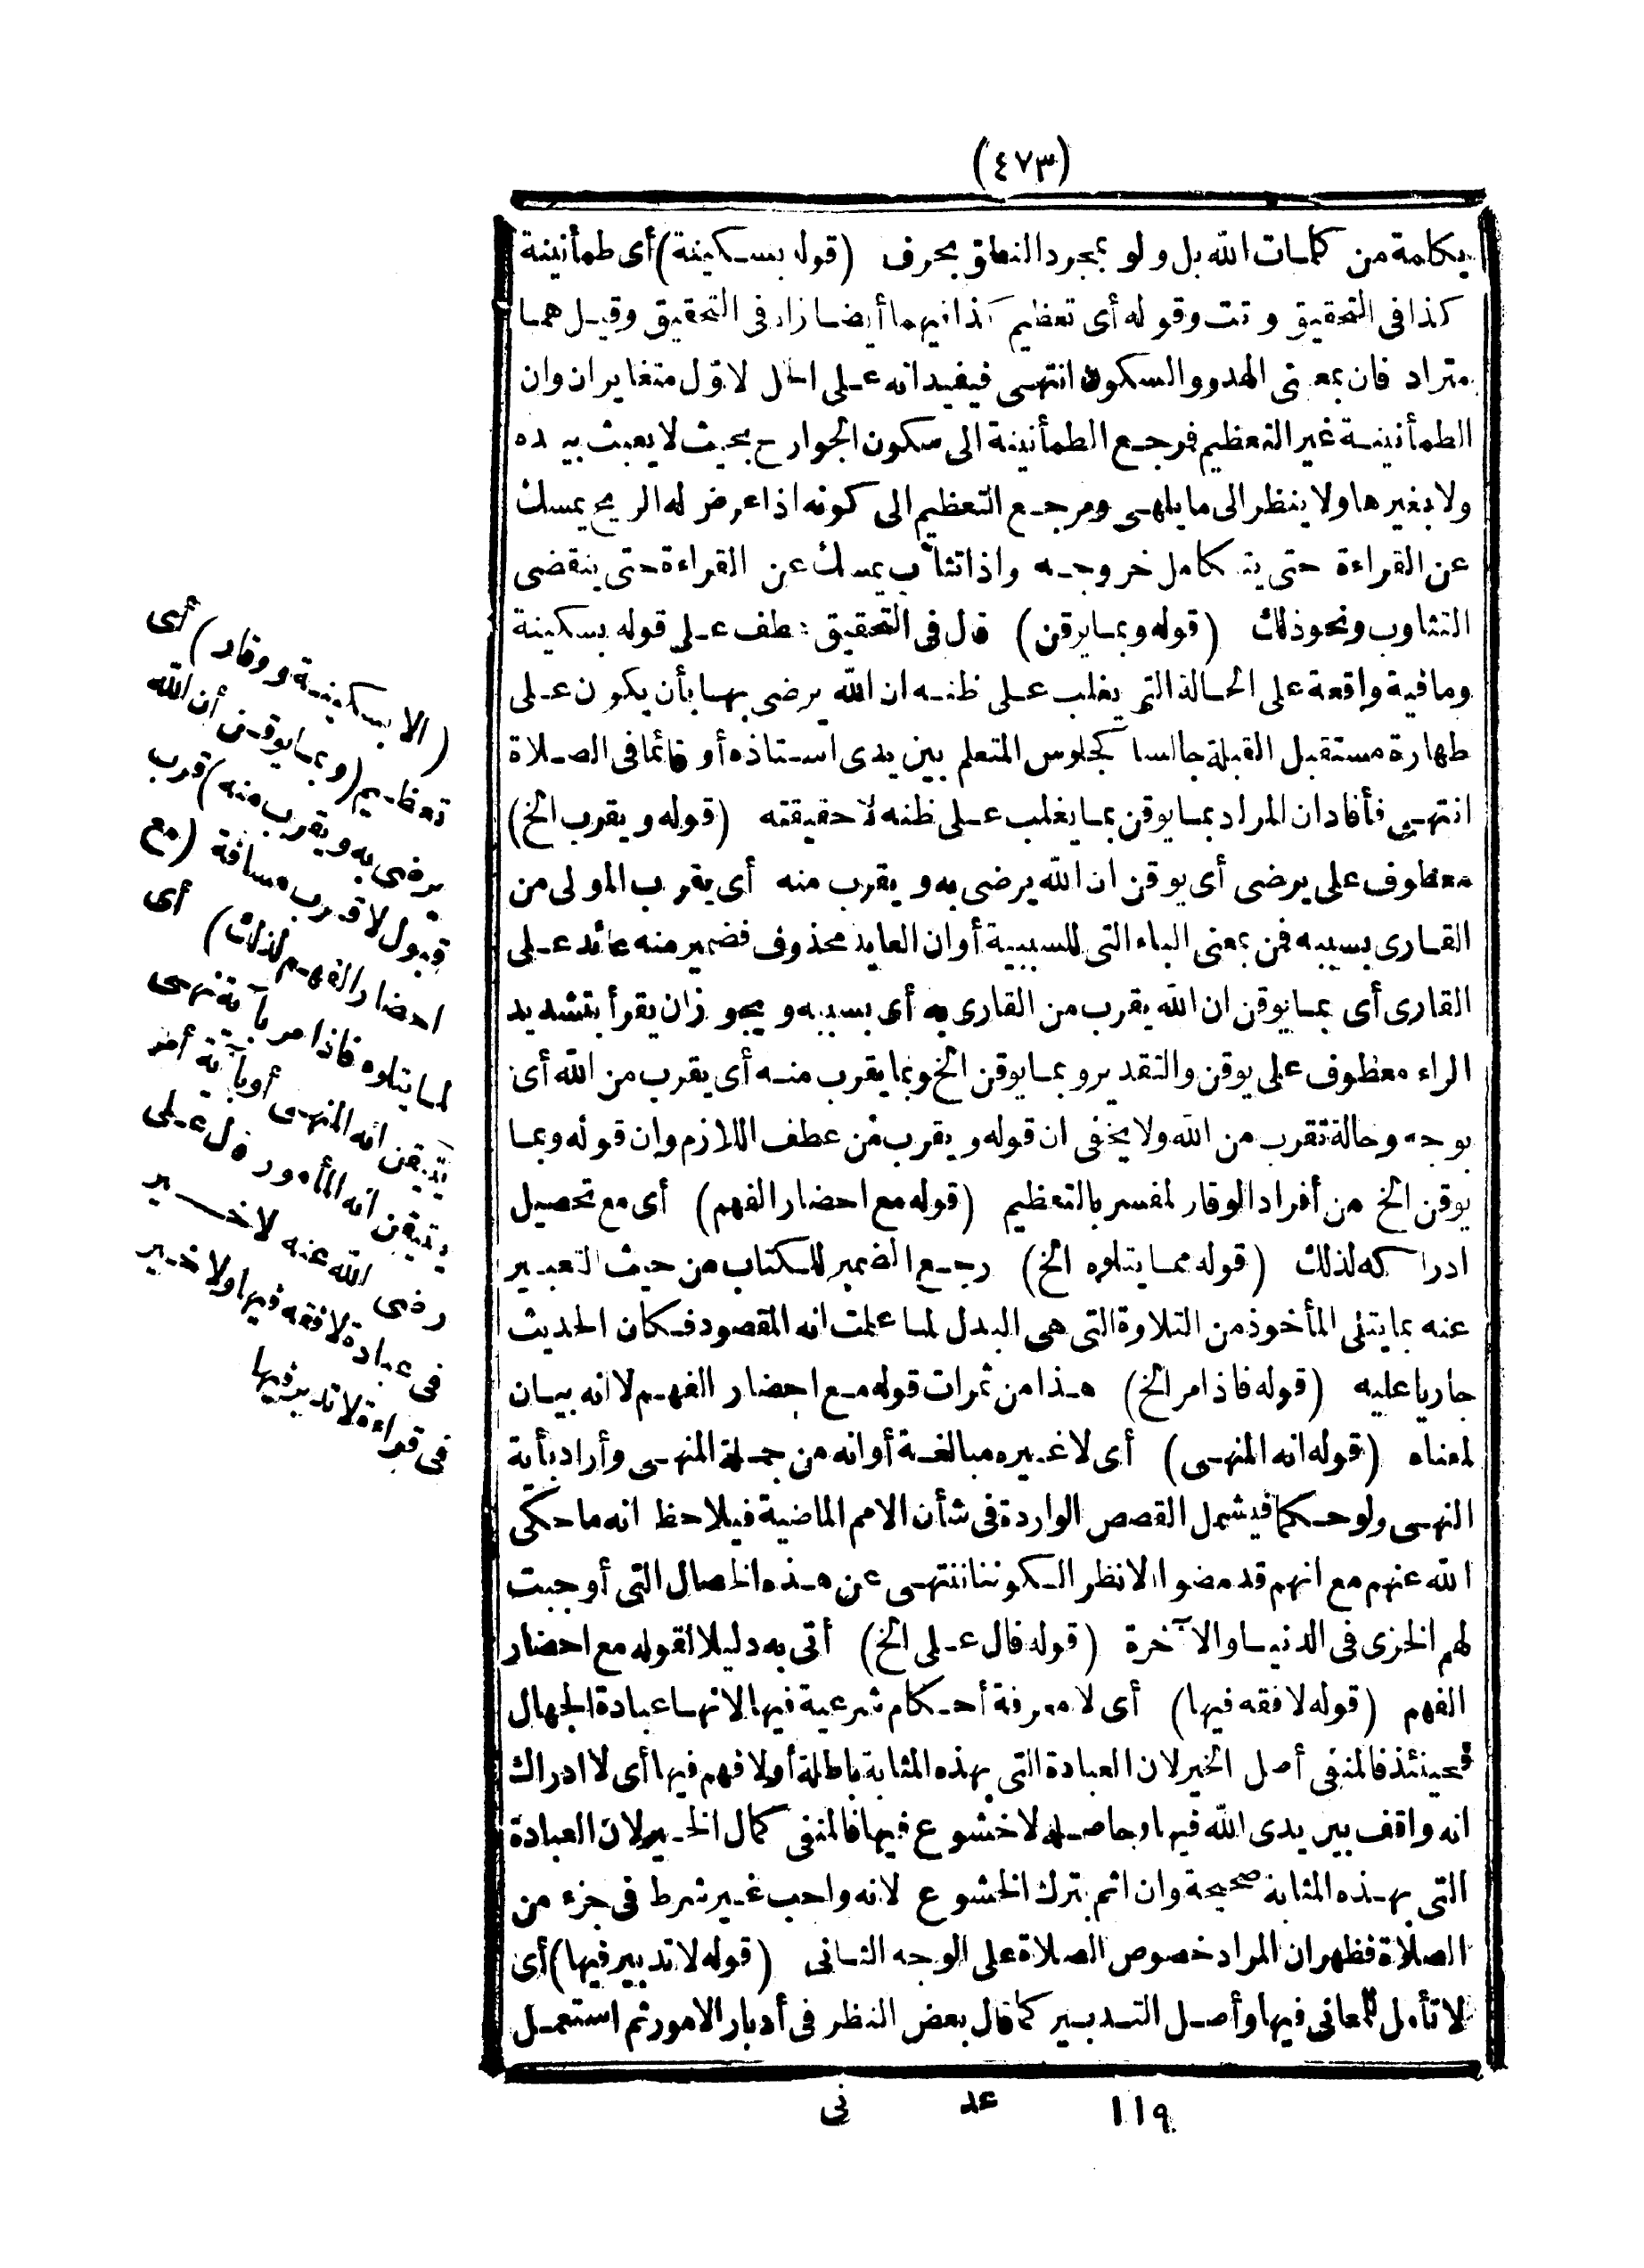 (٤٧٣)
بكلمة من كلمات الله بل ولو بمجرد النطق بحرف (قوله بسكينة) أى طمأنينة
كذا فى التحقيق و تت وقوله أى تعظيم كذا فيهما أيضا زاد فى التحقيق وقيل هما
متراد فان بمعنى الهدو والسكون انتهى فيفيد انه على الحل الاول متغايران وان
الطمأنينة غير التعظيم فرجع الطمأنينة الى سكون الجوارح بحيث لا يعبث بيده
ولا بغيرها ولا ينظر الى ما يلهى ومرجع التعظيم الى كونه اذا عرض له الريح يمسك
عن القراءة حتى يتكامل خروجه واذا تثاب يمسك عن القراءة حتى ينقضى
التثاوب ونحو ذلك (قوله وبما يوقن) قال فى التحقيق عطف على قوله بسكينة
وما فية واقعة على الحالة التى يغلب على ظنه ان الله يرضى بها بأن يكون على
طهارة مستقبل القبلة جالسا كجلوس المتعلم بين يدى استاذه أو قائما فى الصلاة
انتهى فأفاد ان المراد بما يوقن بما يغلب على ظنه لا حقيقته (قوله ويقرب الخ)
معطوف على يرضى أى يوقن ان الله يرضى به ويقرب منه أى يقرب المولى من
القارى بسببه فمن بمعنى الباء التى للسببية أو ان العايد محذوف فضمير منه عائد على
القارى أى بما يوقن ان الله يقرب من القارى به أى بسببه ويجوز ان يقرأ بتشديد
الراء معطوف على يوقن والتقدير وبما يوقن الخ وبما يقرب منه أى يقرب من الله أى
بوجه وحالة تقرب من الله ولا يخفى ان قوله ويقرب من عطف اللازم وان قوله وبما
يوقن الخ من أفراد الوقار لمفسر بالتعظيم (قوله مع احضار الفهم) أى مع تحصيل
ادراكه لذلك (قوله مما يتلوه الخ) رجع الضمير للكتاب من حيث التعبير
عنه بما يتلى المأخوذ من التلاوة التى هى البدل لما علمت انه المقصود فكان الحديث
جاريا عليه (قوله فاذا مر الخ) هذا من ثمرات قوله مع احضار الفهم لا انه بيان
لمعناه (قوله انه المنهى) أى لا غيره مبالغة أو انه من جملة المنهى وأراد بأية
النهى ولو حكما فيشمل القصص الواردة فى شأن الامم الماضية فيلاحظ انه ما حكى
الله عنهم مع انهم قد مضوا الا نظر الكوننا ننتهى عن هذه الخصال التى أوجبت
لهم الخزى فى الدنيا والآخرة (قوله قال على الخ) أتى به دليلا لقوله مع احضار
الفهم (قوله لا فقه فيها) أى لا معرفة أحكام شرعية فيها لانها عبادة الجهال
فحينئذ فالمنفى أصل الخير لان العبادة التى بهذه المثابة باطلة أو لا فهم فيها أى لا ادراك
انه واقف بين يدى الله فيها وحاصله لا خشوع فيها فالمنفى كمال الخير لان العبادة
التى بهذه المثابة صحيحة وان اثم بترك الخشوع لانه واجب غير شرط فى جزء من
الصلاة فظهر ان المراد خصوص الصلاة على الوجه الثانى (قوله لا تدبير فيها) أى
لا تأمل لمعانى فيها وأصل التدبير كما قال بعض النظر فى أدبار الامور ثم استعمل
١١٩ عد نى
(الا بسكينة ووقار) أى
تعظيم (وبما يوقن أن الله
يرضى به ويقرب منه) قرب
قبول لا قرب مسافة (مع
احضار الفهم لذلك) أى
لما يتلوه فاذا مر بآية نهى
تيقن انه المنهى أو بآية أمر
يتيقن انه المأمور قال على
رضى الله عنه لا خير
فى عبادة لا فقه فيها ولا خير
فى قراءة لا تدبر فيها